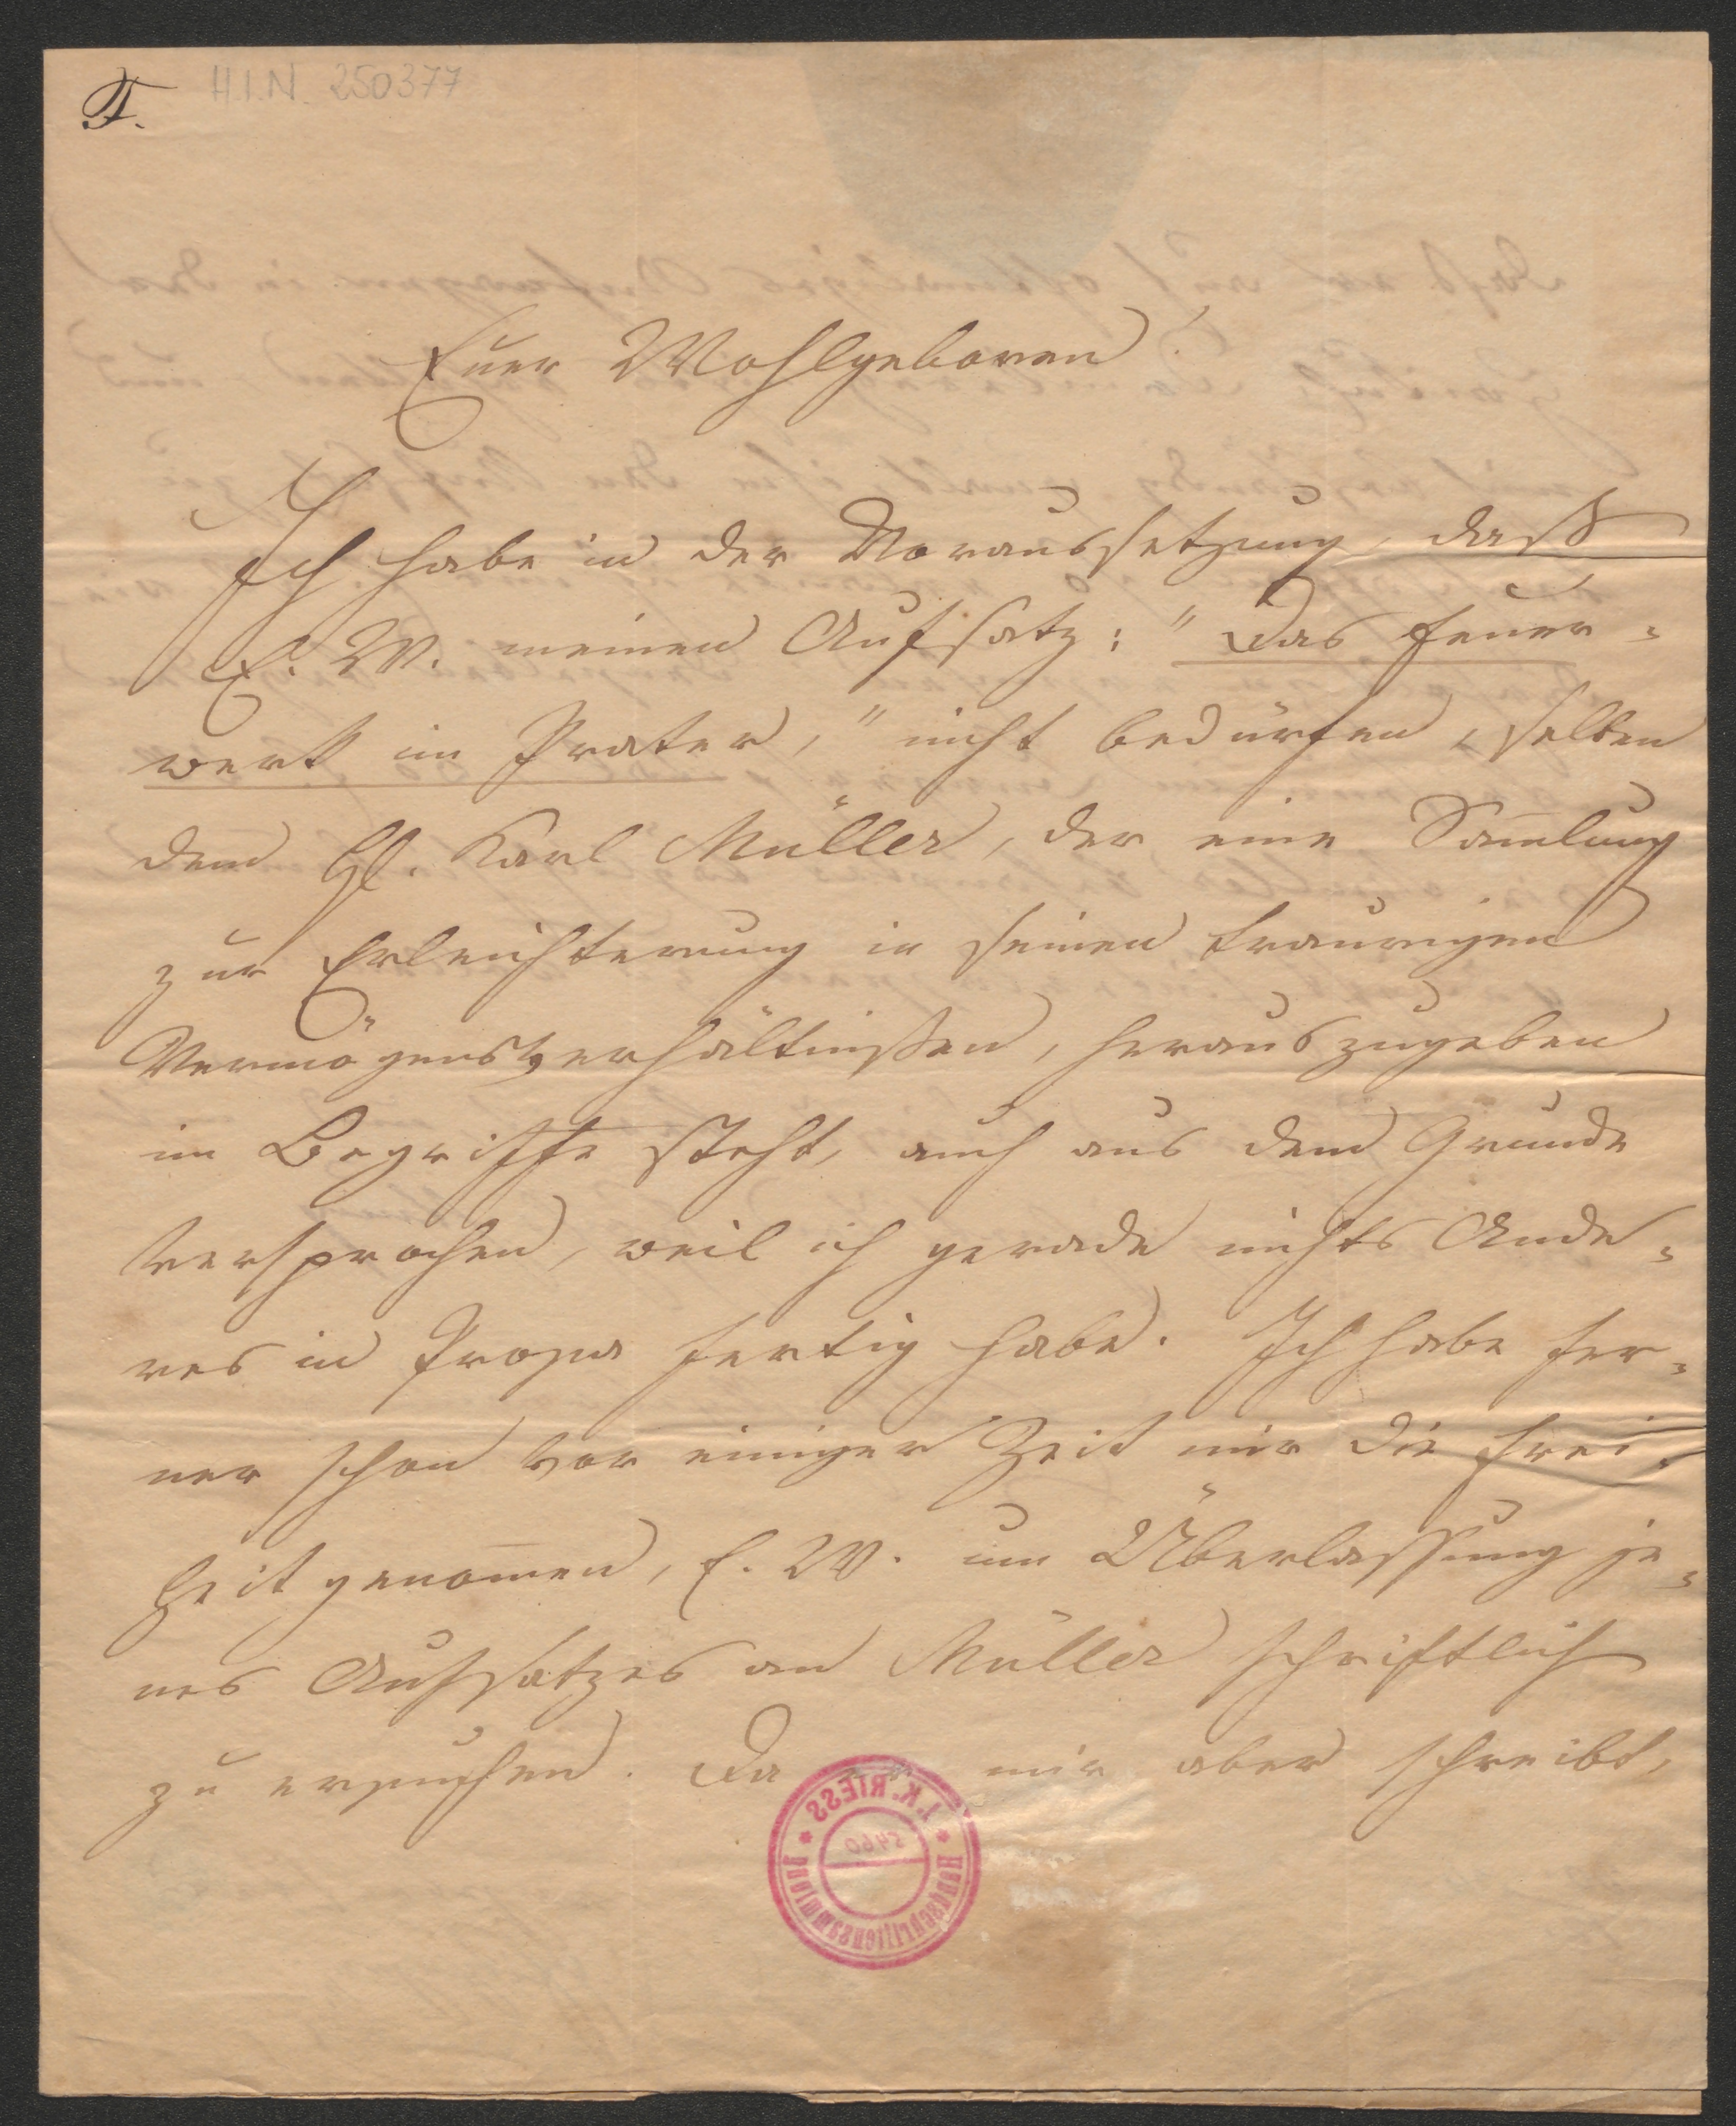 F. H.I.N. 250377
Euer Wohlgeboren!
Ich habe in der Voraussetzung, daß
E. W. meinen Aufsatz: "Das Feuer-
werk im Prater," nicht bedürfen, selben
dem H. Karl Müller, der eine Sam̄lung
zur Erleichterung in seinen traurigen
Vermögensverhältnißen, herauszugeben
im Begriffe steht, auch aus dem Grunde
versprochen, weil ich gerade nichts Ande-
res in Prosa fertig habe. Ich habe fer-
ner schon vor einiger Zeit mir die Frei-
heit genom̄en, E. W. um Überlassung je-
nes Aufsatzes an Müller schriftlich
zu ersuchen. Da mir aber schreibt,
J.K. RIESS
Handschriftensammlung
5460